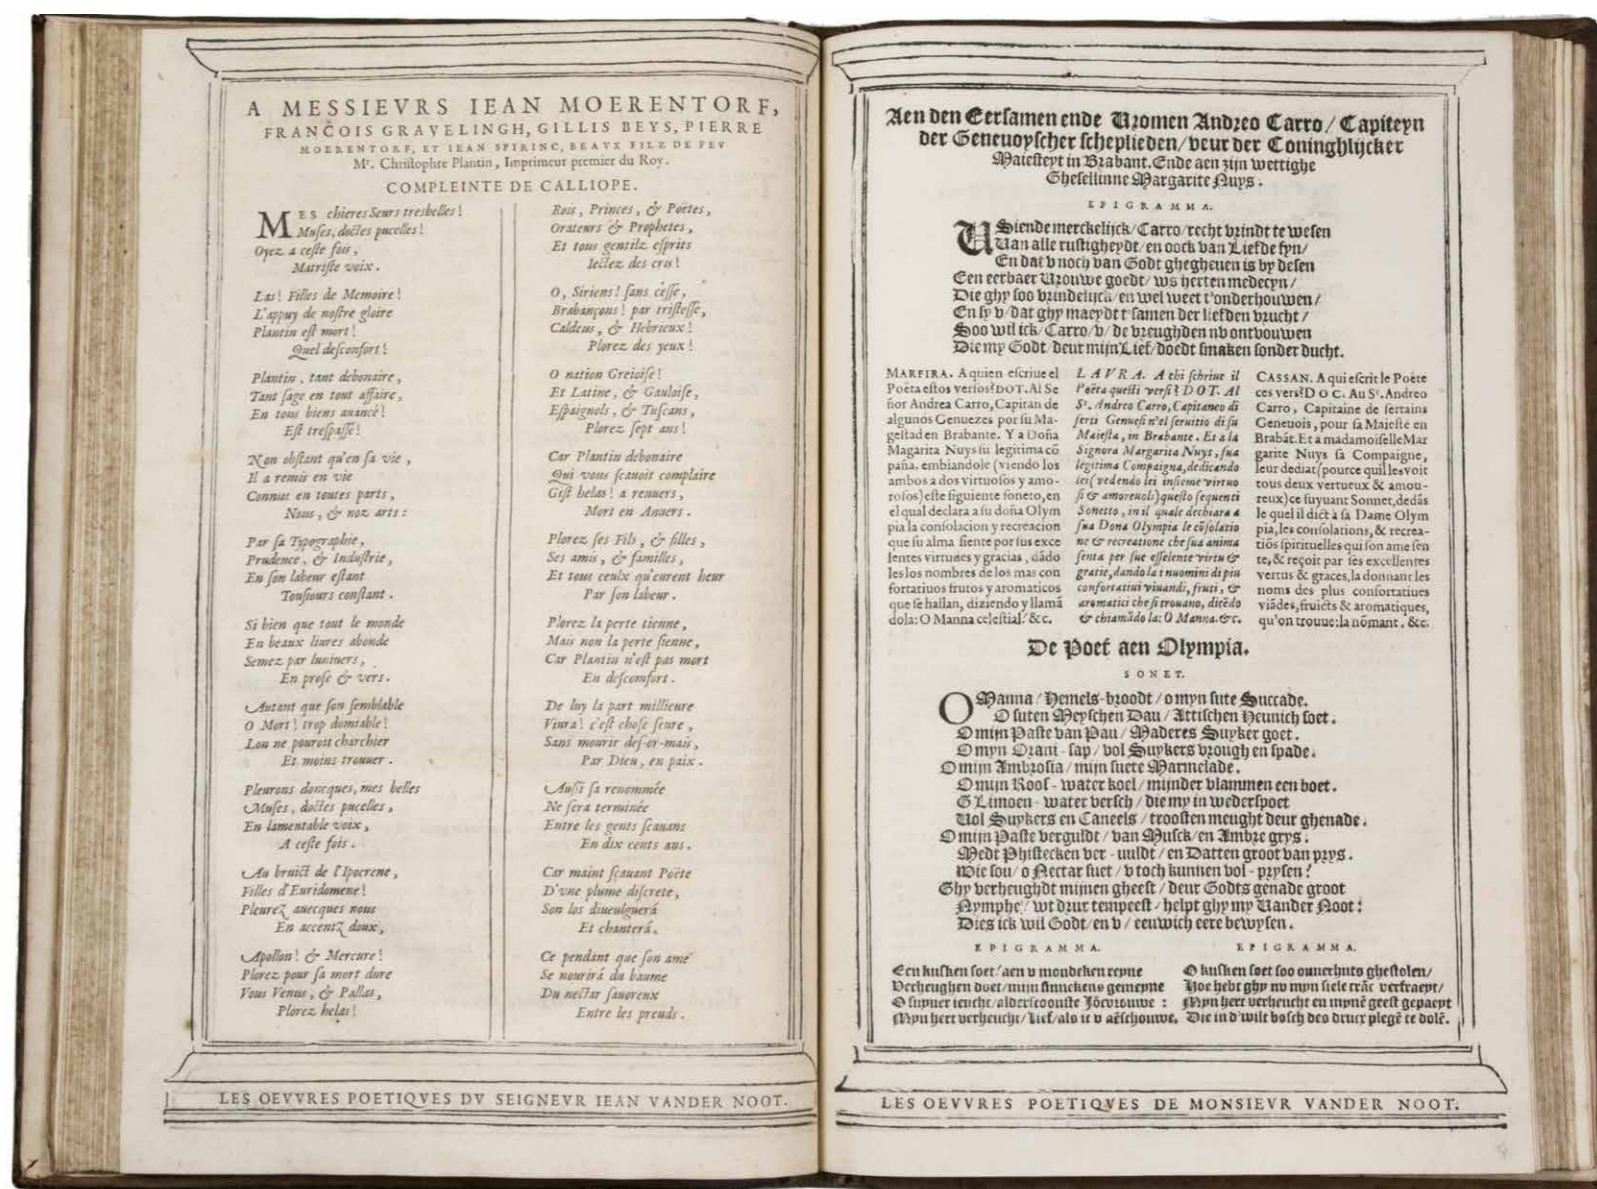 A MESSIEVRS IEAN MOERENTORF,
FRANCOIS GRAVELINGH, GILLIS BEYS, PIERRE
MOERENTORF, ET IEAN SPIRINC, BEAVX FILZ DE FEV
Mr. Christophre Plantin, Imprimeur premier du Roy.
COMPLEINTE DE CALLIOPE.
MES chieres Seurs tresbelles!
Muses, doctes pucelles!
Oyez a ceste fois,
Matriste voix.
Las! Filles de Memoire!
L'appuy de nostre gloire
Plantin est mort!
Quel desconfort!
Plantin, tant debonaire,
Tant sage en tout affaire,
En tous biens auancé!
Est trespassé!
Non obstant qu'en sa vie,
Il a remis en vie
Connus en toutes parts,
Nous, & noz arts:
Par sa Typographie,
Prudence, & Industrie,
En son labeur estant
Tousiours constant.
Si bien que tout le monde
En beaux liures abonde
Semez par luniuers,
En prose & vers.
Autant que son semblable
O Mort! trop domtable!
Lon ne pourott charchier
Et moins trouuer.
Pleurons doncques, mes belles
Muses, doctes pucelles,
En lamentable voix,
A ceste fois.
Au bruict de l'Ipocrene,
Filles d'Euridomene!
Pleurez auecques nous
En accentz doux,
Apollon! & Mercure!
Plorez pour sa mort dure
Vous Venus, & Pallas,
Plorez helas!
Rois, Princes, & Poëtes,
Orateurs & Prophetes,
Et tous gentilz esprits
Iectez des cris!
O, Siriens! sans cesse,
Brabançons! par tristesse,
Caldeus, & Hebrieux!
Plorez des yeux!
O nation Greioise!
Et Latine, & Gauloise,
Espaignels, & Tuscans,
Plorez sept ans!
Car Plantin debonaire
Qui vous scauoit complaire
Gist helas! a renuers,
Mort en Anuers.
Plorez ses Fils, & filles,
Ses amis, & familles,
Et tous ceulx qu'eurent heur
Par son labeur.
Plorez la perte tienne,
Mais non la perte sienne,
Car Plantin n'est pas mort
En descomfort.
De luy la part millieure
Viura! c'est chose seure,
Sans mourir des-or-mais,
Par Dieu, en paix.
Aussi sa renommée
Ne sera terminée
Entre les gents scauans
En dix cents ans.
Car maint sçauant Poëte
D'vne plume discrete,
Son los diueulguerá
Et chanterá.
Ce pendant que son ame
Se nourirá du baume
Du nectar sauoreux
Entre les preuds.
LES OEVVRES POETIQVES DV SEIGNEVR IEAN VANDER NOOT.
Aen den Eersamen ende Vromen Andreo Carro/ Capiteyn
der Genevoyscher scheplieden/ veur der Coninghlijcker
Maiesteyt in Brabant. Ende aen zijn wettighe
Ghesellinne Margarite Nuys.
EPIGRAMMA.
VSiende merckelijck/ Carro/ recht vrindt te wesen
Van alle rustigheydt/ en oock van Liefde fyn/
En dat v noch van Godt ghegheuen is by desen
Een eerbaer Vrouwe goedt/ ws herten medecyn/
Die ghy soo vrindelijck/ en wel weet t'onderhouwen/
En sy v/ dat ghy maeydt t'samen der liefden vrucht/
Soo wil ick/ Carro/ v/ de vreughden nv ontvouwen
Die my Godt/ deur mijn Lief/ doedt smaken sonder ducht.
MARFIRA. A quien escriue el
Poëta estos verios? DOT. Al Se
ñor Andrea Carro, Capitan de
algunos Genuezes por su Ma-
gestad en Brabante. Y a Doña
Magarita Nuys su legitima cō
paña, embiandole (viendo los
ambos a dos virtuosos y amo-
rosos) este siguiente soneto, en
el qual declara a su doña Olym
pia la consolacion y recreacion
que su alma siente por sus exce
lentes virtudes y gracias, dādo
les los nombres de los mas con
fortatiuos frutos y aromaticos
que se hallan, diziendo y llamā
dola: O Manna celestial! &c.
LAVRA. A chi schriue il
Poëta questi versi? DOT. Al
Sr. Andreo Carro, Capitaneo di
serti Genuesi n'el seruitio di su
Maiesta, in Brabante. Et a la
Signora Margarita Nuys, sua
legitima Compaigna, dedicando
lei (vedendo lei insieme virtuo
si & amoreuols) questo sequenti
Sonetto, in il quale dechiara a
sua Dona Olympia le cōsolatio
ne & recreatione che sua anima
senta per sue esselente virtu &
gratie, dando la i nuomini di piu
confortatiui viuandi, fruti, &
aromatici che si trouano, dicēdo
& chiamādo la: O Manna. &c.
CASSAN. A qui escrit le Poëte
ces vers? DOC. Au Sr. Andreo
Carro, Capitaine de sertains
Geneuois, pour sa Maiesté en
Brabāt. Et a madamoiselle Mar
garite Nuys sa Compaigne,
leur dediāt (pource quil les voit
tous deux vertueux & amou-
reux) ce suyuant Sonnet, dedās
le quel il dict à sa Dame Olym
pia, les consolations, & recrea-
tiōs spirituelles qui son ame sen
te, & reçoit par ses excellentes
vertus & graces, la donnant les
noms des plus consortatiues
viādes, fruicts & aromatiques,
qu'on trouue: la nōmant, &c.
De Poët aen Olympia.
SONET.
O Manna/ Hemels-broodt/ o myn sute Succade.
O suten Meyschen Dau/ Attischen Heunich soet.
O mijn Paste van Pau/ Maderes Suyker goet.
O myn Orani-sap/ vol Suykers vrough en spade.
O mijn Ambrosia/ mijn suete Marmelade.
O mijn Roos-water koel/ mijnder vlammen een boet.
O Limoen-water versch/ die my in wederspoet
Vol Suykers en Caneels/ troosten meught deur ghenade.
O mijn Paste verguldt/ van Musck/ en Ambre grys.
Medt Phistecken ver-uuldt/ en Datten groot van prys.
Wie sou/ o Nectar suet/ v toch kunnen vol-prysen?
Ghy verheughdt mijnen gheest/ deur Godts genade groot
Nymphe/ wt druz tempeest/ helpt ghy my Vander Noot:
Dies ick wil Godt/ en v/ eeuwich eere bewysen.
EPIGRAMMA.
Een kusken soet! aen v mondeken reyne
Verheughen doet/ mijn sinnekens gemeyne
O supuer ieucht/ alderscoonste Jōcvrouwe:
Myn hert verheucht/ Lief/ als ic v aēschouwe.
EPIGRAMMA.
O kusken soet soo onuerhuts ghestolen/
Hoe hebt ghy nv myn siele crāc verfraeyt/
Myn hert verheucht en mynē geest gepaeyt
Die in d'wilt bosch des drucx plegē te dolē.
LES OEVVRES POETIQVES DE MONSIEVR VANDER NOOT.